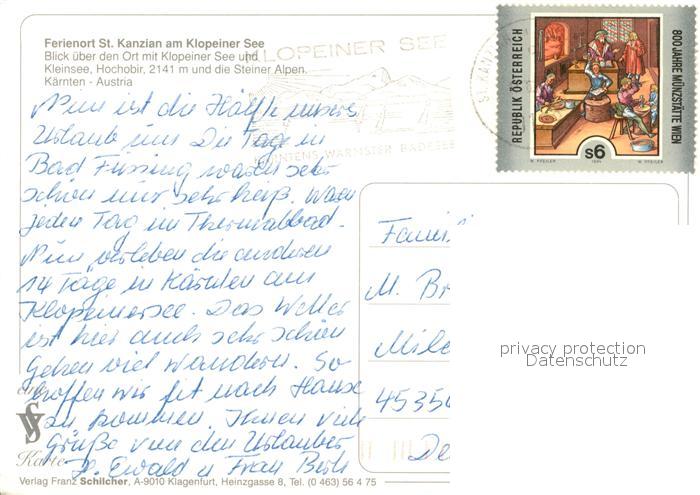 Ferienort St. Kanzian am Klopeiner See
Blick über den Ort mit Klopeiner See und
Kleinsee, Hochobir, 2141 m und die Steiner Alpen.
Kärnten - Austria
KLOPEINER SEE
KÄRNTENS WÄRMSTER BADESEE
REPUBLIK ÖSTERREICH
800 JAHRE MÜNZSTÄTTE WIEN
S6
Nun ist die Hälfte unseres
Urlaub um. Die Tage in
Bad Füssing waren sehr
schön nur sehr heiß. Waren
jeden Tag im Thermalbad.
Nun verleben die anderen
14 Tage in Kärnten am
Klopeinersee. Das Wetter
ist hier auch sehr schön
gehen viel wandern. So
hoffen wir fit nach Hause
zu kommen. Ihnen viele
Grüße von den Urlauber
H. Ewald u Frau
Famil
M. Br
45356
De
privacy protection
Datenschutz
Karte
Verlag Franz Schilcher, A-9010 Klagenfurt, Heinzgasse 8, Tel. (0 463) 56 4 75